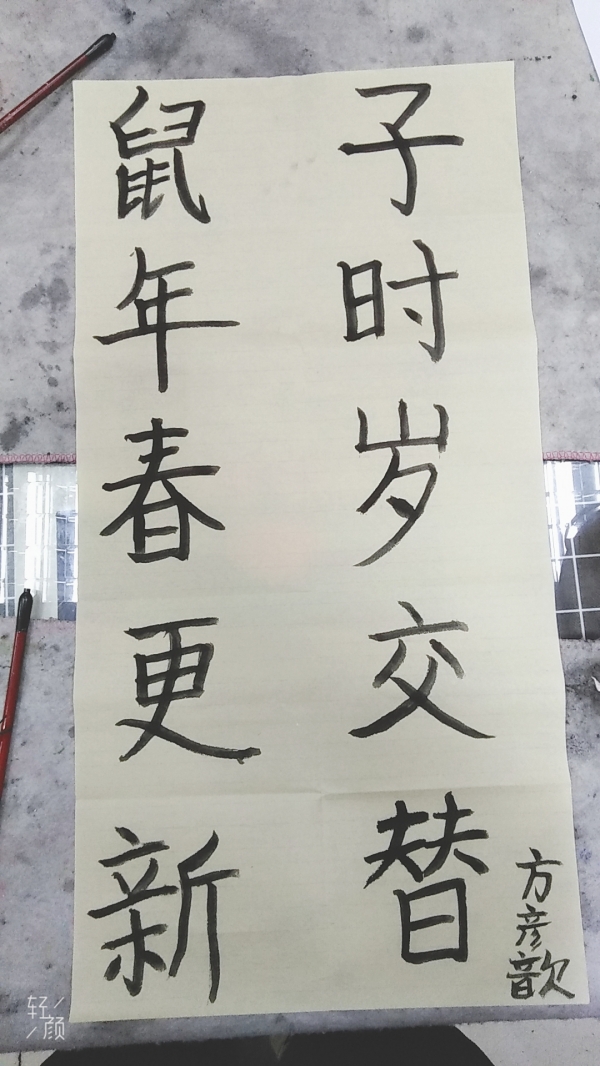 子时岁交替
鼠年春更新
方彦歆
轻颜